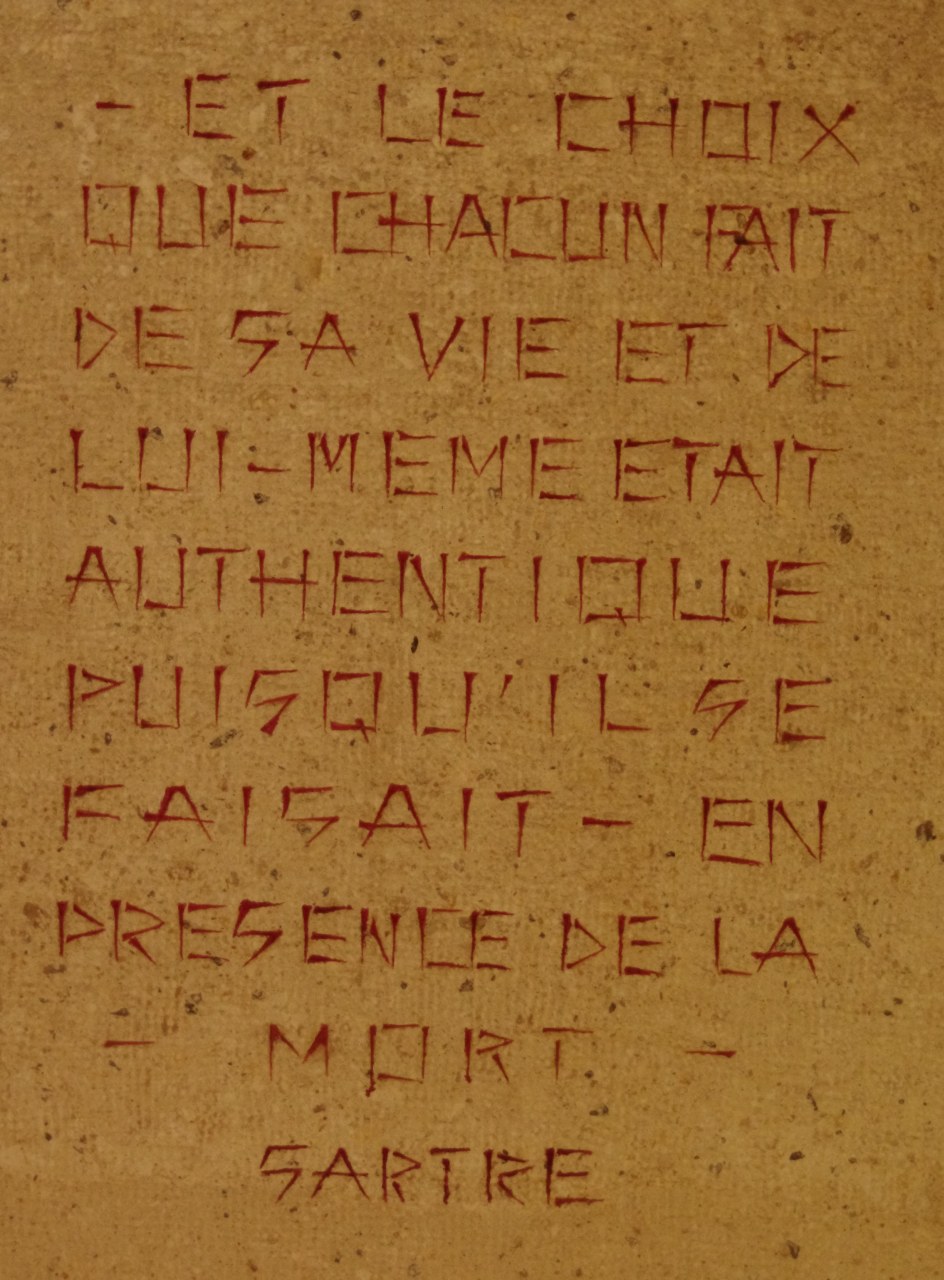 - ET LE CHOIX
QUE CHACUN FAIT
DE SA VIE ET DE
LUI-MEME ETAIT
AUTHENTIQUE
PUISQU'IL SE
FAISAIT - EN
PRESENCE DE LA
- MORT -
SARTRE